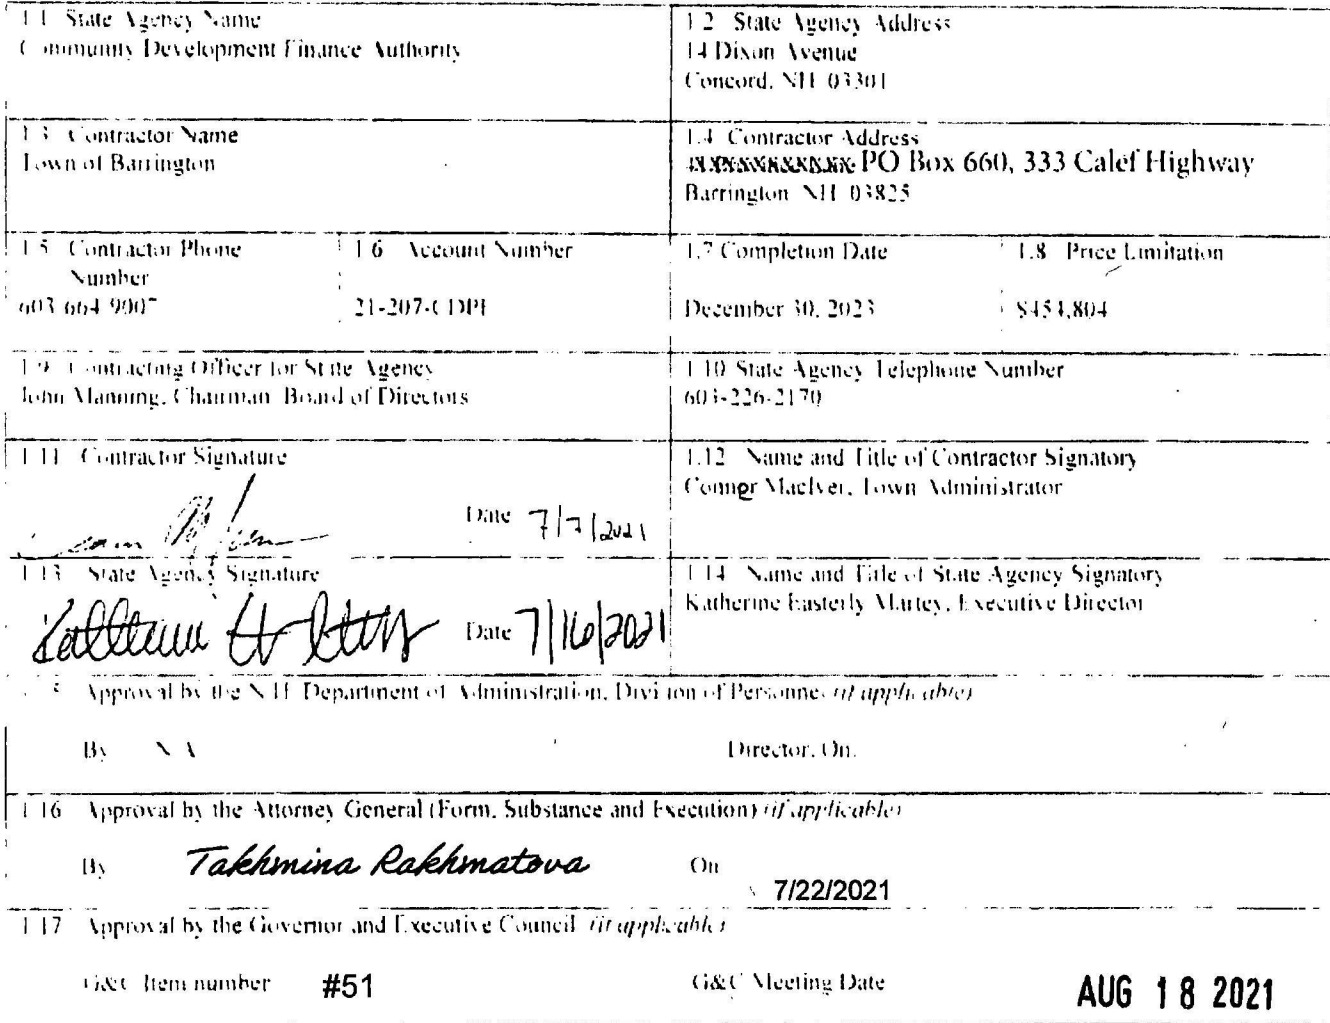 1.1 State Agency Name
Community Development Finance Authority
1.2 State Agency Address
14 Dixon Avenue
Concord, NH 03301
1.3 Contractor Name
Town of Barrington
1.4 Contractor Address
PO Box 660, 333 Calef Highway
Barrington NH 03825
1.5 Contractor Phone
Number
603 664 9007
1.6 Account Number
21-207-CDPF
1.7 Completion Date
December 30, 2023
1.8 Price Limitation
$454,804
1.9 Contracting Officer for State Agency
John Manning, Chairman Board of Directors
1.10 State Agency Telephone Number
603-226-2170
1.11 Contractor Signature
Date 7/7/2021
1.12 Name and Title of Contractor Signatory
Conner MacIver, Town Administrator
1.13 State Agency Signature
Date 7/16/2021
1.14 Name and Title of State Agency Signatory
Katherine Easterly Martey, Executive Director
Approval by the N.H. Department of Administration, Division of Personnel (if applicable)
By NA
Director, On:
1.16 Approval by the Attorney General (Form, Substance and Execution) (if applicable)
By Takhmina Rakhmatova
On 7/22/2021
1.17 Approval by the Governor and Executive Council (if applicable)
G&C Item number #51
G&C Meeting Date AUG 18 2021